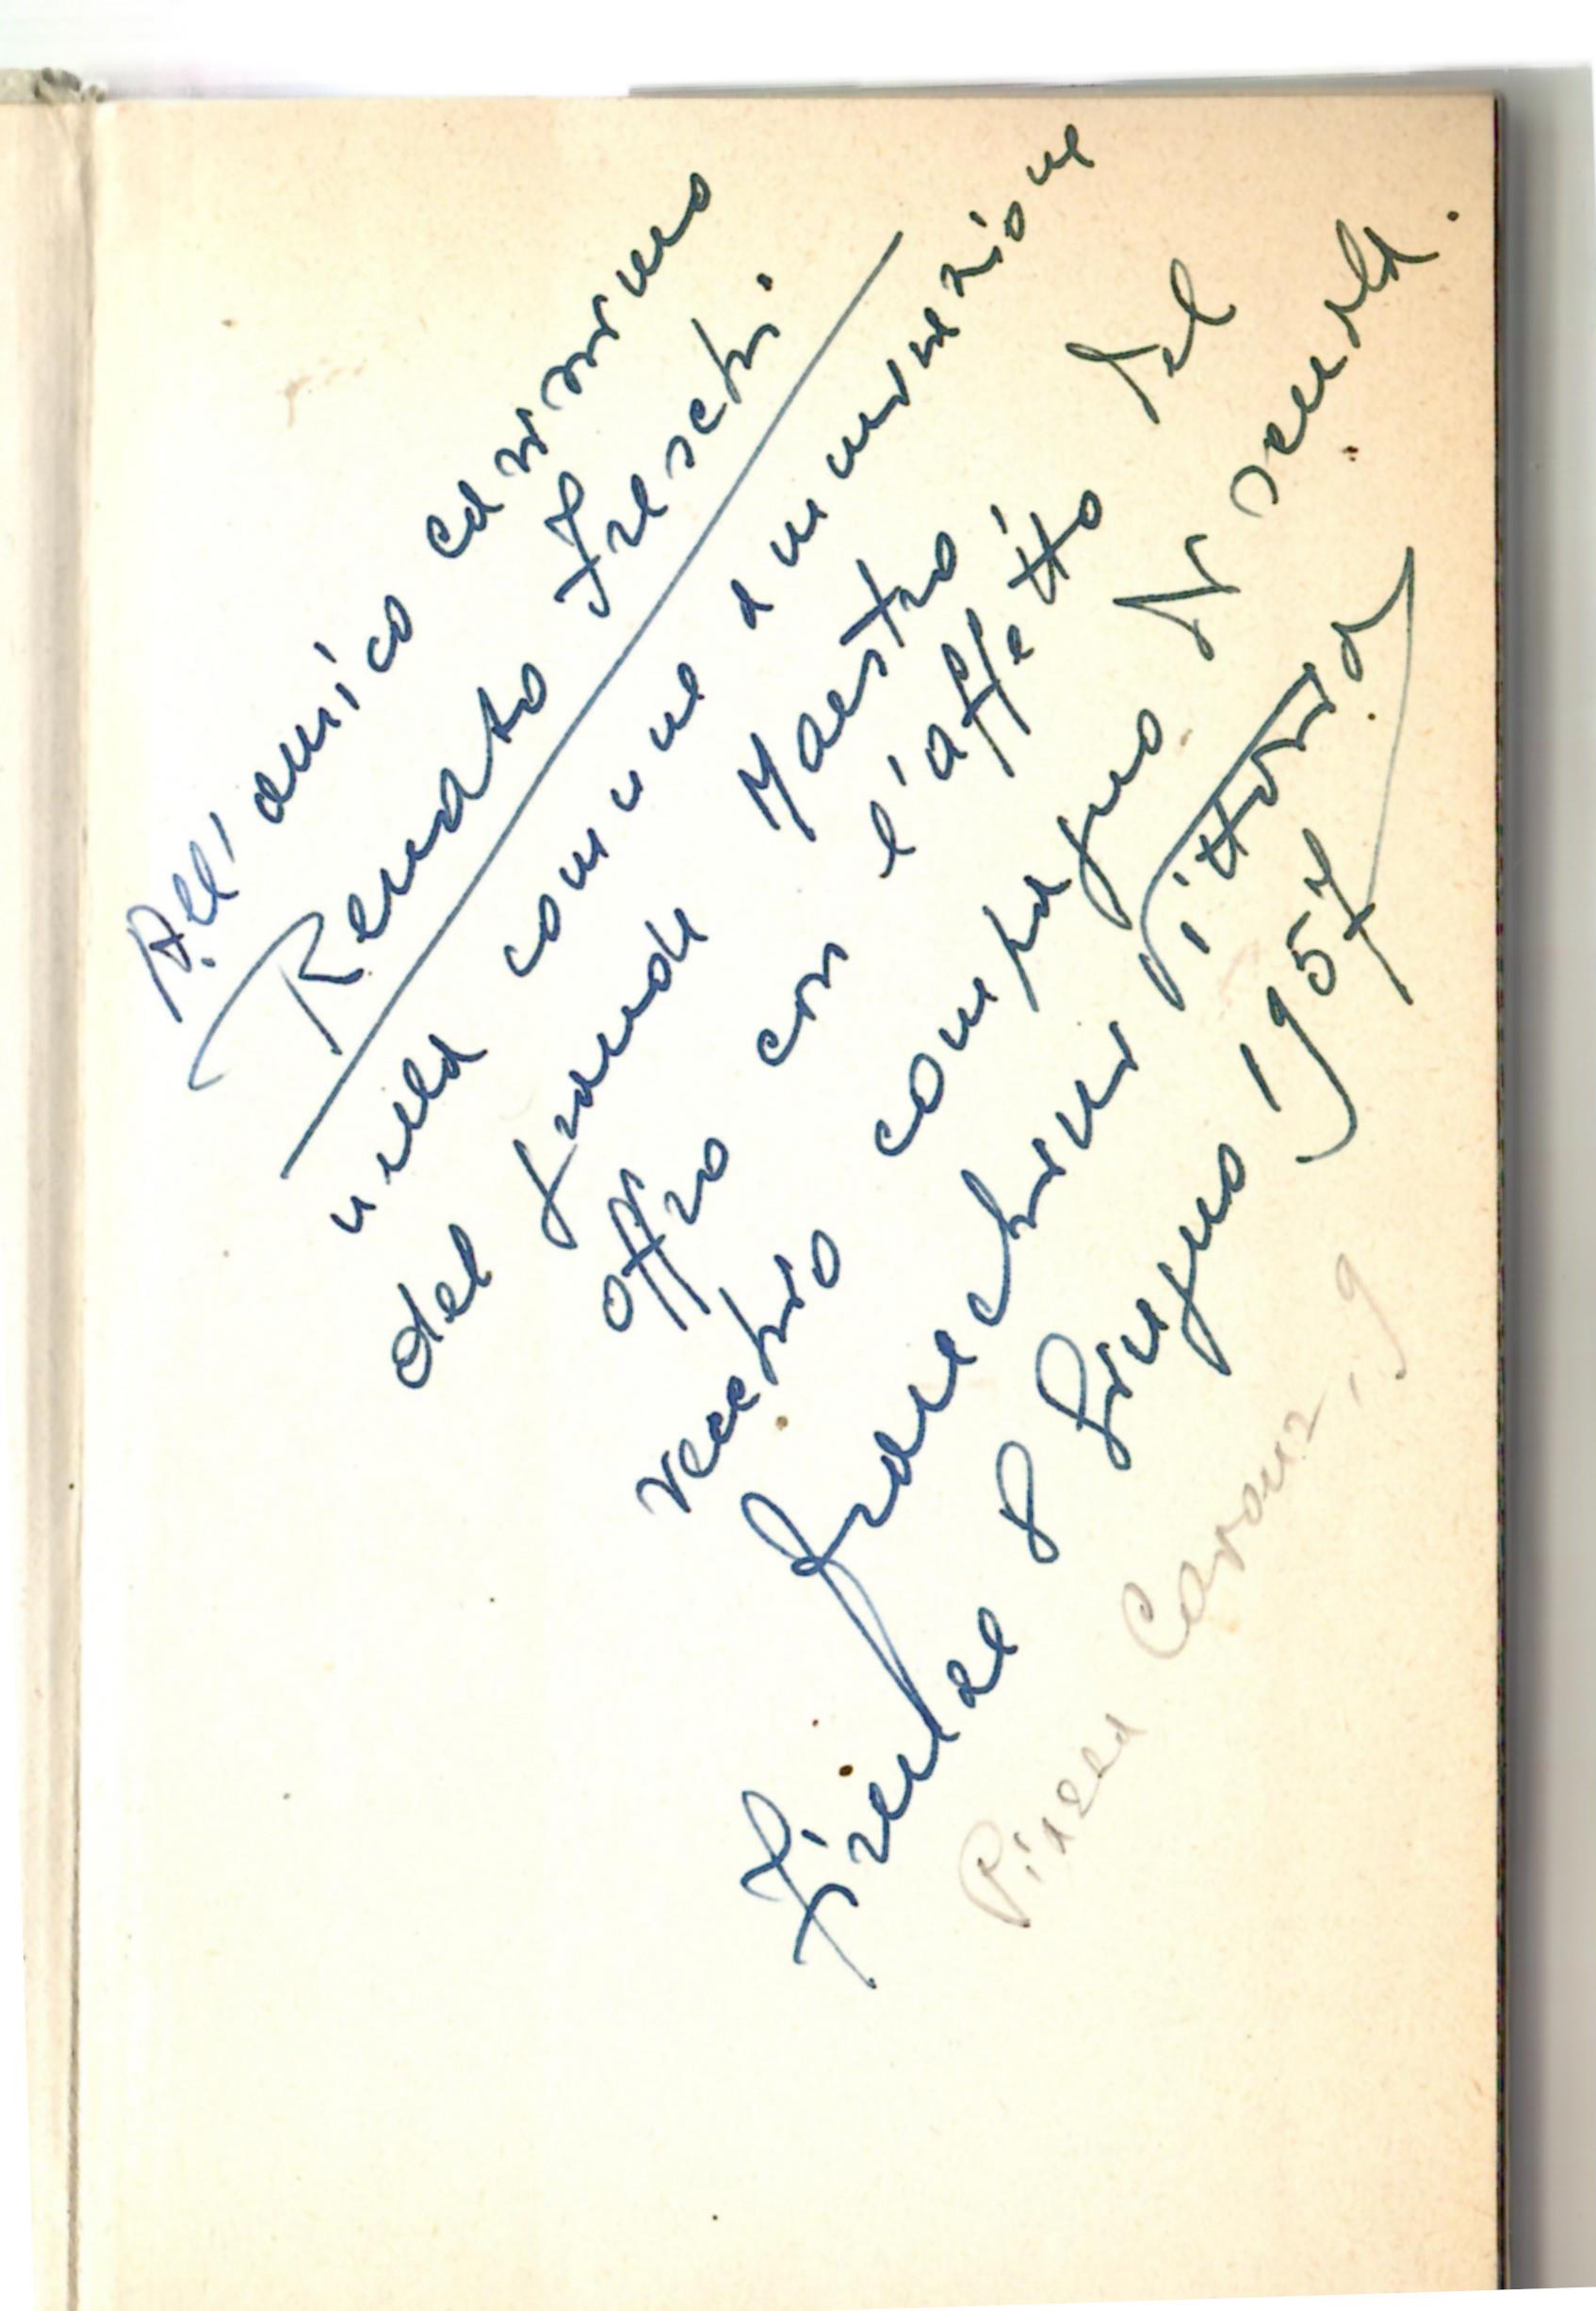 All'amico carissimo
Renato Freschi.
nella comune ammirazione
del grande Maestro
offro con l'affetto del
vecchio compagno di scuola.
Franchini Vittorio
Firenze 8 Giugno 1957
Piazza Cavour, 9